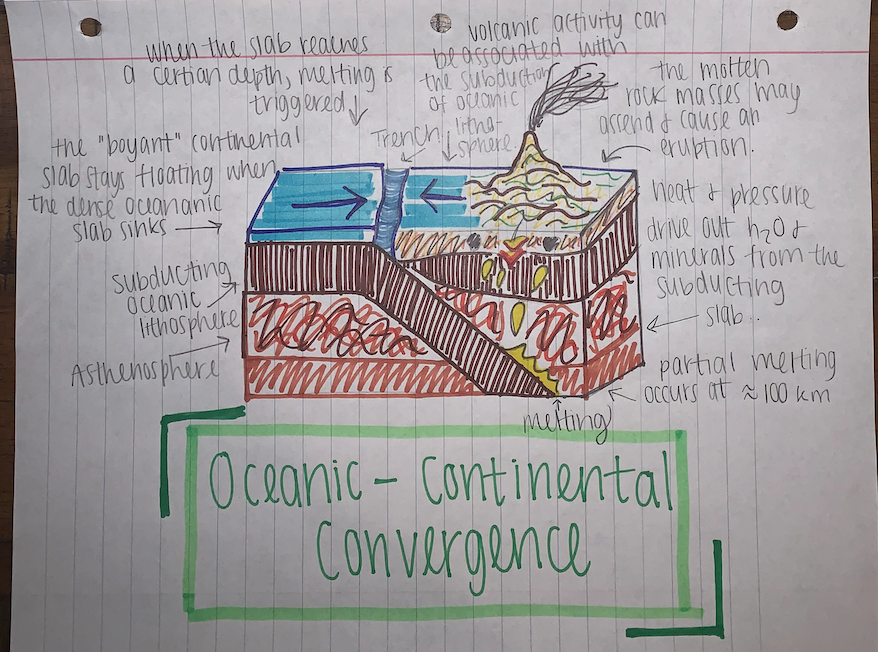 when the slab reaches
a certian depth, melting is
triggered
volcanic activity can
be associated with
the subduction
of oceanic
litho-
sphere.
the motten
rock masses may
assend & cause an
eruption.
Trench
the "boyant" continental
slab stays floating when
the dense oceananic
slab sinks
heat & pressure
drive out h2O &
minerals from the
subducting
slab.
Subducting
oceanic
lithosphere
Asthenosphere
partial melting
occurs at ≈100 km
melting
Oceanic - Continental
Convergence